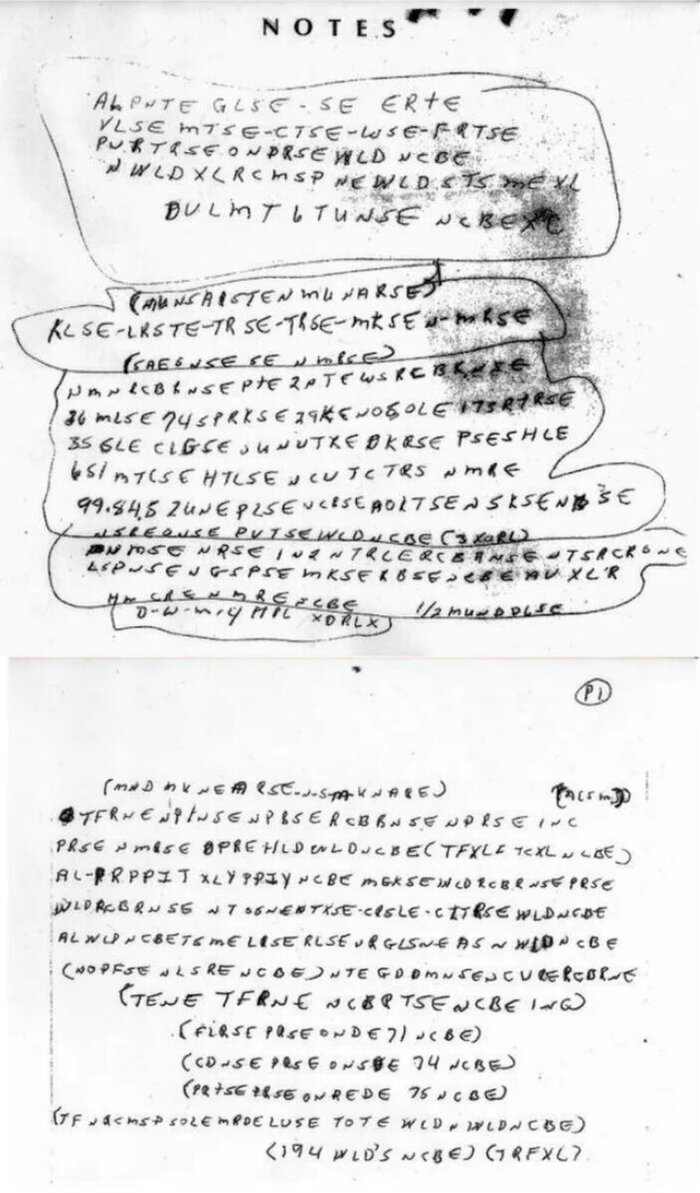 NOTES
ALPNTE GLSE-SE ERTE
VLSE MTSE-CTSE-WSE-FRTSE
PNRTRSEONDRSEWLD NCBE
NWLDXLRCMSP NEWLDSTSMEXL
DULMT6TUNSE NCBEXC
(MUNSAISTENMUNARSE)
KLSE-LRSTE-TRSE-TRSE-MKSEN-MRSE
(SAEGNSESE NMRSE)
NMNRCBRNSEPTE2PTEWSRCBRNSE
36MLSE74SPRKSE29KENOSOLE173RTRSE
35GLE CLGSE UNUTXE DKRSE PSESHLE
651MTCSE HTLSENCUTCTRS NMRE
99.84.52UNEPLSENCRSEAOLTSENSKSENBSE
NSREONSE PUTSEWLDNCBE(3XORL)
NMSE NRSE IN2NTRLERCBRNSENTSRCRONE
LSPNSENGSPSE MKSERBSENCBEAUXLR
HM CRENMRENCBE 1/2MUNDDLSE
D-W-M-4 MIL XDRLX
P1
(MNDMKNEARSE-N-S-MKNARE) (ACSM)
TFRNENPTNSENPBSERCBRNSENPRSEINC
PRSENMRSEOPREHLDWLDNCBE(TFXLFTCXLNCBE)
AL-PRPPIT XLYPPIYNCBE MGKSEWLDRCBRNSEPRSE
WLDRCBRNSE NTOSNENTXSE-CRSLE-CITRSEWLDNCBE
ALWLDNCBETSMELRSERLSEURGLSNEASNWLDNCBE
(NOPFSENLSRENCBE)NTEGDDMNSENCURERCBRNE
(TENE TFRNE NCBRTSENCBEINC)
(FLRSEPRSEONDE71NCBE)
(CDNSEPRSEONSDE74NCBE)
(PRTSEPRSEONREDE75NCBE)
(TFNQCMSPSOLEMRDELUSETOTEWLDNWLDNCBE)
(194WLD'SNCBE)(TRFXL)